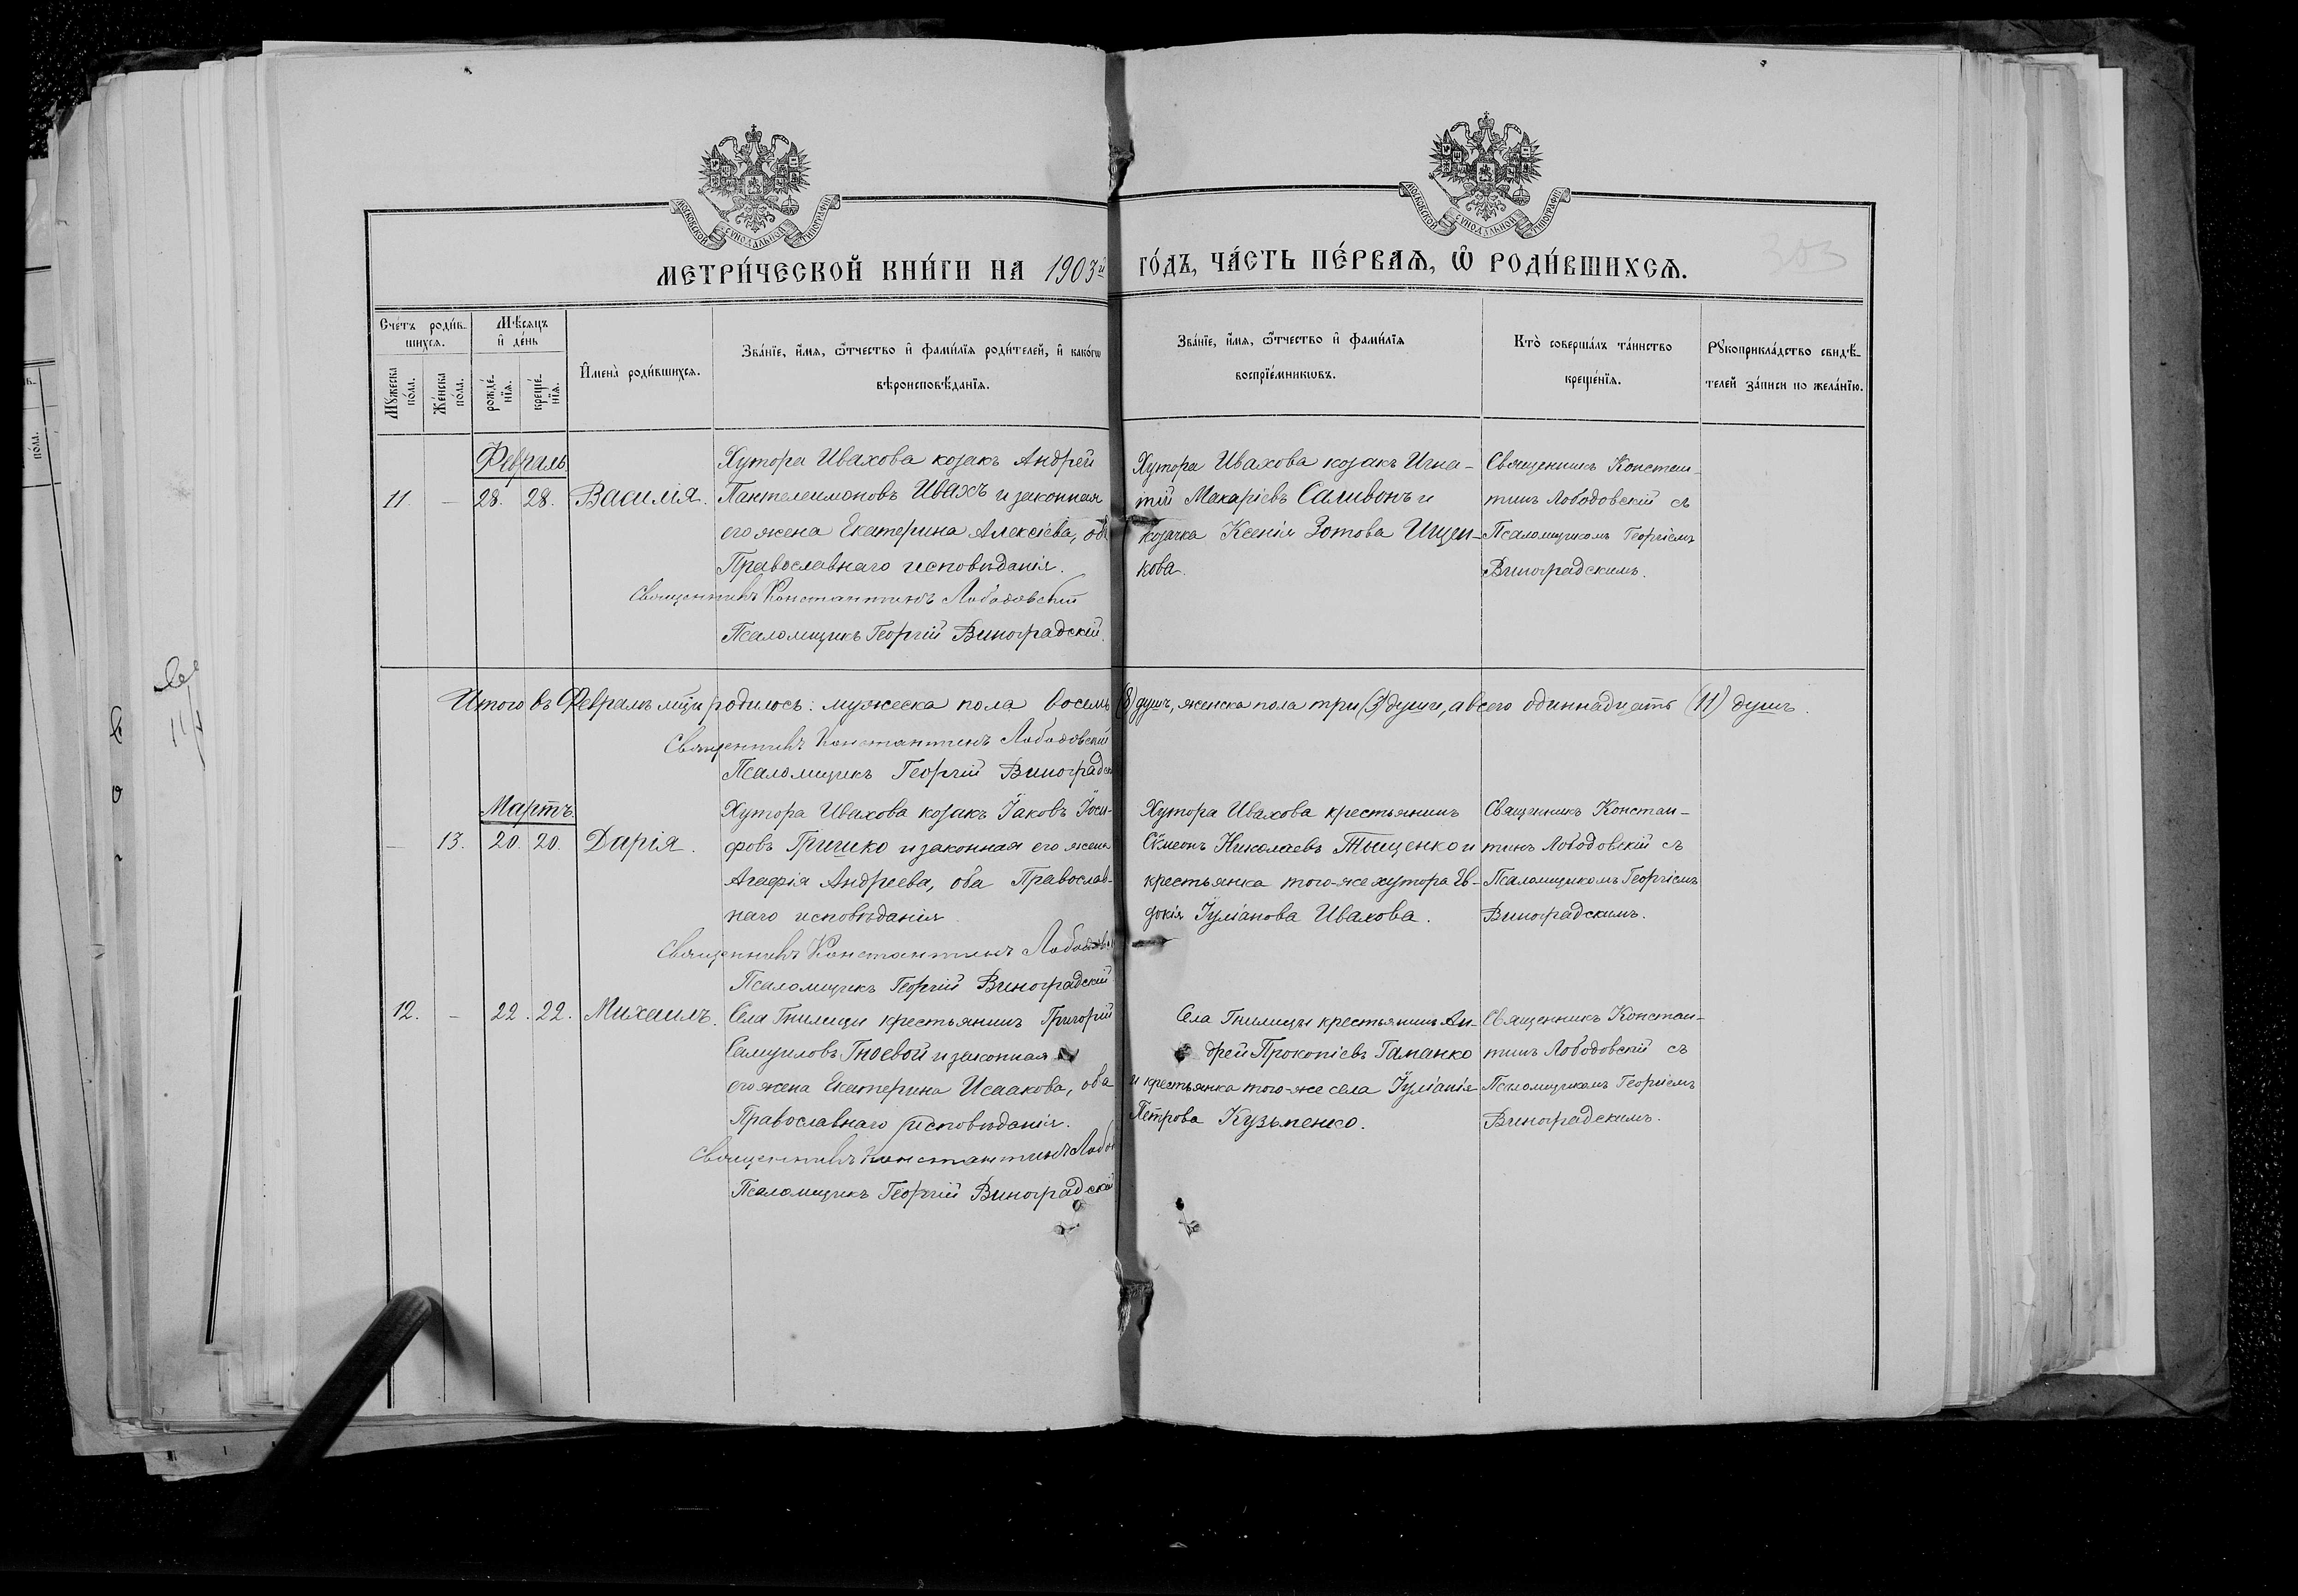 МОСКОВСКОЙ СУНОДАЛЬНОЙ ТИПОГРАФІИ
МОСКОВСКОЙ СУНОДАЛЬНОЙ ТИПОГРАФІИ
МЕТРИ́ЧЕСКОЙ КНИ́ГИ НА 1903й ГО́ДЪ, ЧА́СТЬ ПЕ́РВАѦ, Ѡ҆ РОДИ́ВШИХСѦ.
203
Сче́тъ роди́в-
шихсѧ.
Мꙋ́жеска по́ла.
Же́нска по́ла.
Мѣ́сѧцъ и҆ де́нь
рожде́-нїѧ.
креще́-нїѧ.
И҆мена̀ роди́вшихсѧ.
Зва́нїе, и҆́мѧ, ѻ҆́тчество и҆ фами́лїѧ роди́телей, и҆ како́гѡ
вѣроисповѣ́данїѧ.
Зва́нїе, и҆́мѧ, ѻ҆́тчество и҆ фами́лїѧ
воспрїе́мникѡвъ.
Кто̀ соверша́лъ та́инство
креще́нїѧ.
Рꙋкоприкла́дство свидѣ́-
телей за́писи по жела́нїю.
Февраль
11. — 28. 28. Василія.
Хутора Ивахова козакъ Андрей
Пантелеимоновъ Ивахъ и законная
его жена Екатерина Алексіева, оба
Православнаго исповѣданія.
Священникъ Константинъ Лободовскій
Псаломщикъ Георгій Виноградскій.
Хутора Ивахова козакъ Игна-
тій Макаріевъ Саливонъ и
козачка Ксенія Зотова Ищен-
кова.
Священникъ Констан-
тинъ Лободовскій съ
Псаломщикомъ Георгіемъ
Виноградскимъ.
Итого въ Февралѣ мцѣ родилось: мужеска пола восемь (8) душъ, женска пола три (3) души, а всего одиннадцать (11) душъ.
Священникъ Константинъ Лободовскій
Псаломщикъ Георгій Виноградск
Мартъ.
— 13. 20. 20. Дарія.
Хутора Ивахова козакъ Іаковъ Іоси-
фовъ Гришко и законная его жена
Агафія Андреева, оба Православ-
наго исповѣданія.
Священникъ Константинъ Лободов
Псаломщикъ Георгій Виноградскій
Хутора Ивахова крестьянинъ
Сѵмеонъ Николаевъ Тыщенко и
крестьянка того-же хутора Ев-
докія Іуліанова Ивахова.
Священникъ Констан-
тинъ Лободовскій съ
Псаломщикомъ Георгіемъ
Виноградскимъ.
12. — 22. 22. Михаилъ.
Села Гнилицы крестьянинъ Григорій
Самуиловъ Гноевой и законная
его жена Екатерина Исаакова, оба
Православнаго исповѣданія.
Священникъ Константинъ Лобо
Псаломщикъ Георгій Виноградскій
Села Гнилицы крестьянинъ Ан-
дрей Прокопіевъ Гапанко
и крестьянка того-же села Іуліанія
Петрова Кузьменко.
Священникъ Констан-
тинъ Лободовскій съ
Псаломщикомъ Георгіемъ
Виноградскимъ.